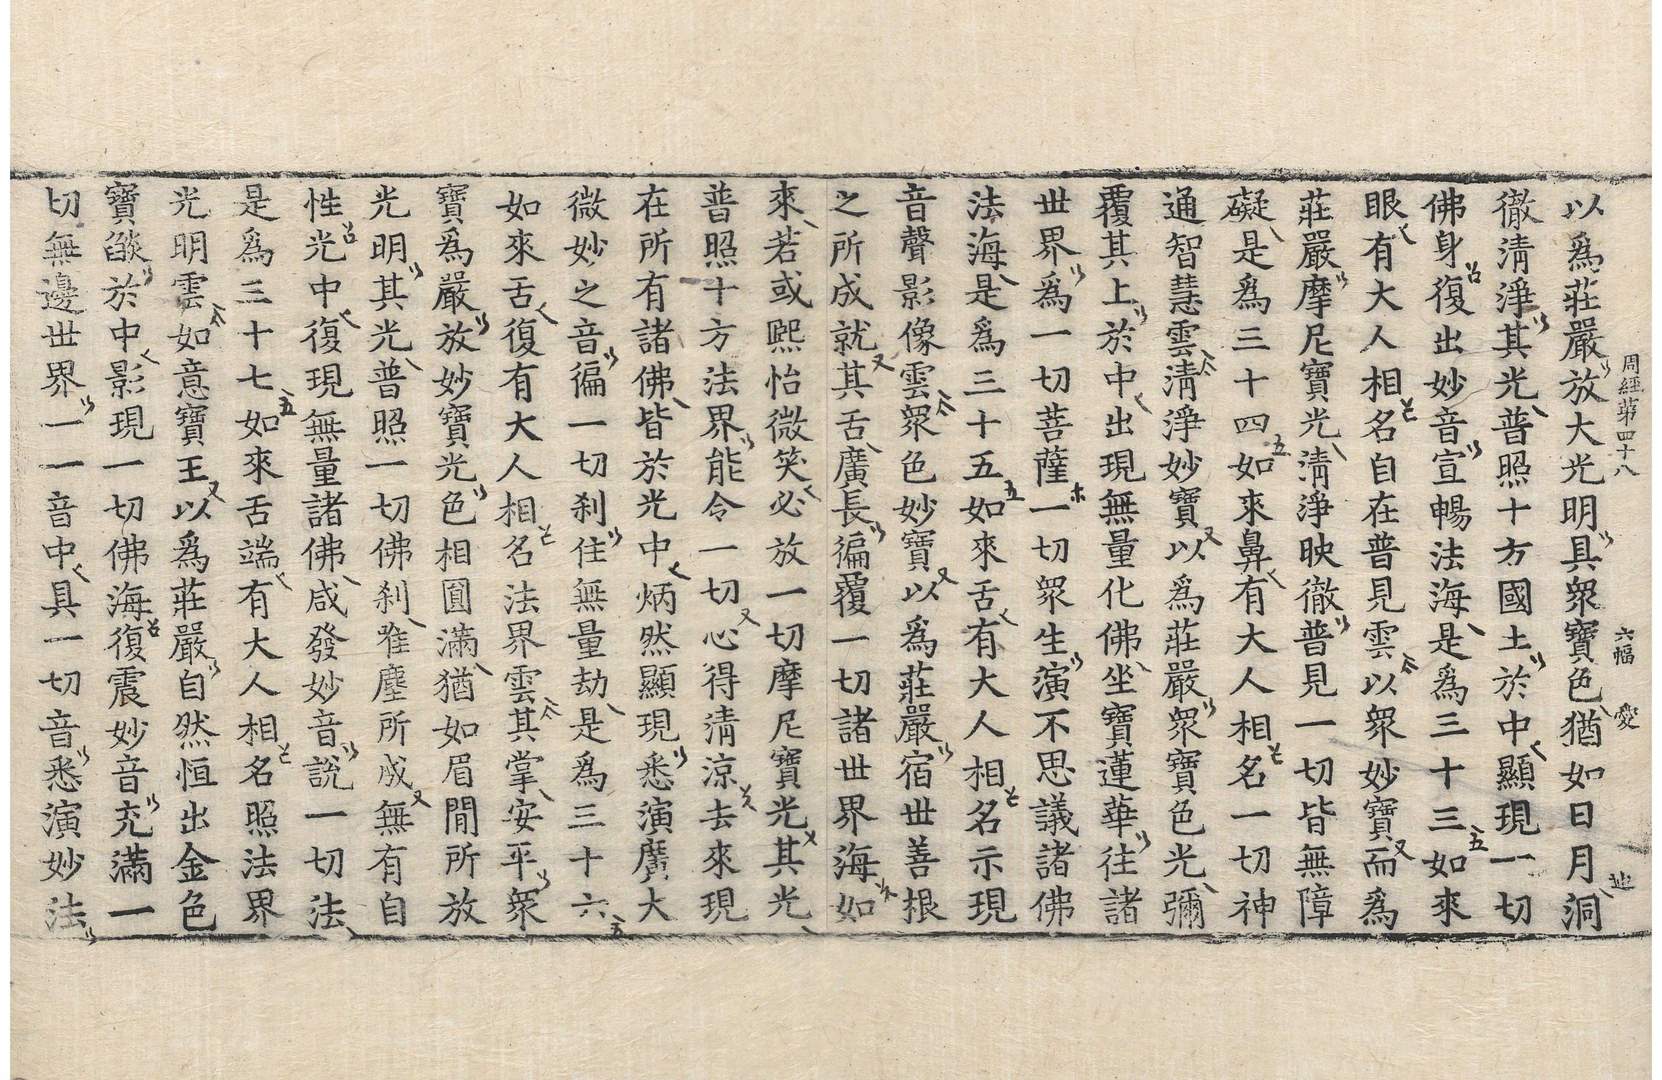 周經第四十八 六幅 愛
以爲莊嚴放大光明具衆寶色猶如日月洞
徹淸淨其光普照十方國土於中顯現一切
佛身復出妙音宣暢法海是爲三十三如來
眼有大人相名自在普見雲以衆妙寶而爲
莊嚴摩尼寶光淸淨映徹普見一切皆無障
礙是爲三十四如來鼻有大人相名一切神
通智慧雲淸淨妙寶以爲莊嚴衆寶色光彌
覆其上於中出現無量化佛坐寶蓮華往諸
世界爲一切菩薩一切衆生演不思議諸佛
法海是爲三十五如來舌有大人相名示現
音聲影像雲衆色妙寶以爲莊嚴宿世善根
之所成就其舌廣長徧覆一切諸世界海如
來若或熙怡微笑必放一切摩尼寶光其光
普照十方法界能令一切心得淸涼去來現
在所有諸佛皆於光中炳然顯現悉演廣大
微妙之音徧一切刹住無量劫是爲三十六
如來舌復有大人相名法界雲其掌安平衆
寶爲嚴放妙寶光色相圓滿猶如眉閒所放
光明其光普照一切佛刹唯塵所成無有自
性光中復現無量諸佛咸發妙音說一切法
是爲三十七如來舌端有大人相名照法界
光明雲如意寶王以爲莊嚴自然恒出金色
寶燄於中影現一切佛海復震妙音充滿一
切無邊世界一一音中具一切音悉演妙法